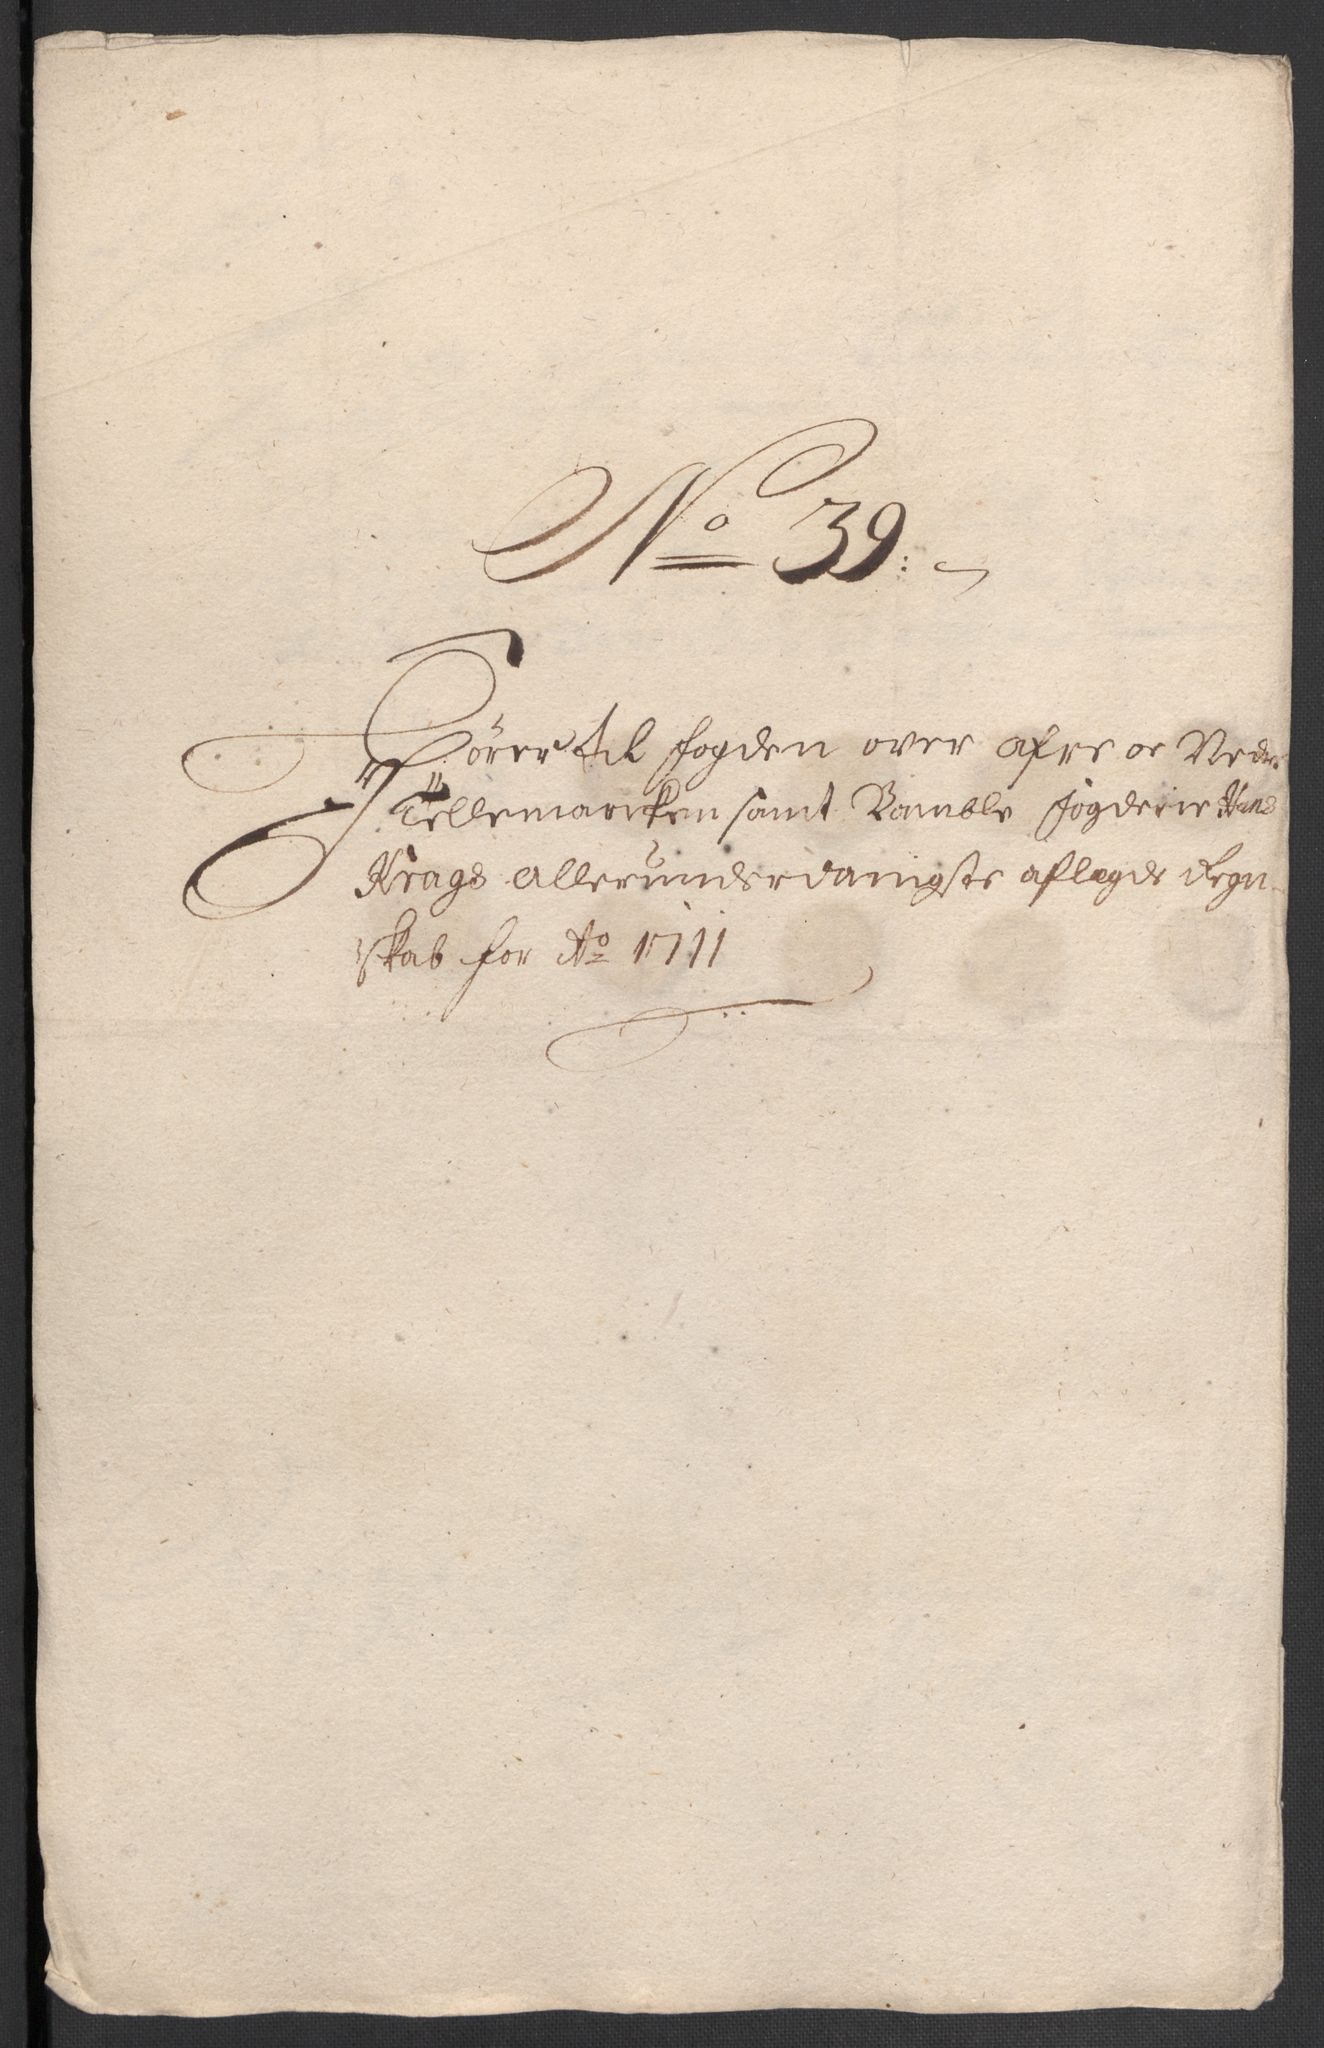 No 39:
Hörer til fogden over Øfre oc Nedre
Tellemarcken samt Bamble fogderie Hans
Krags allerunderdanigste aflagde Regn-
skab for Ao 1711